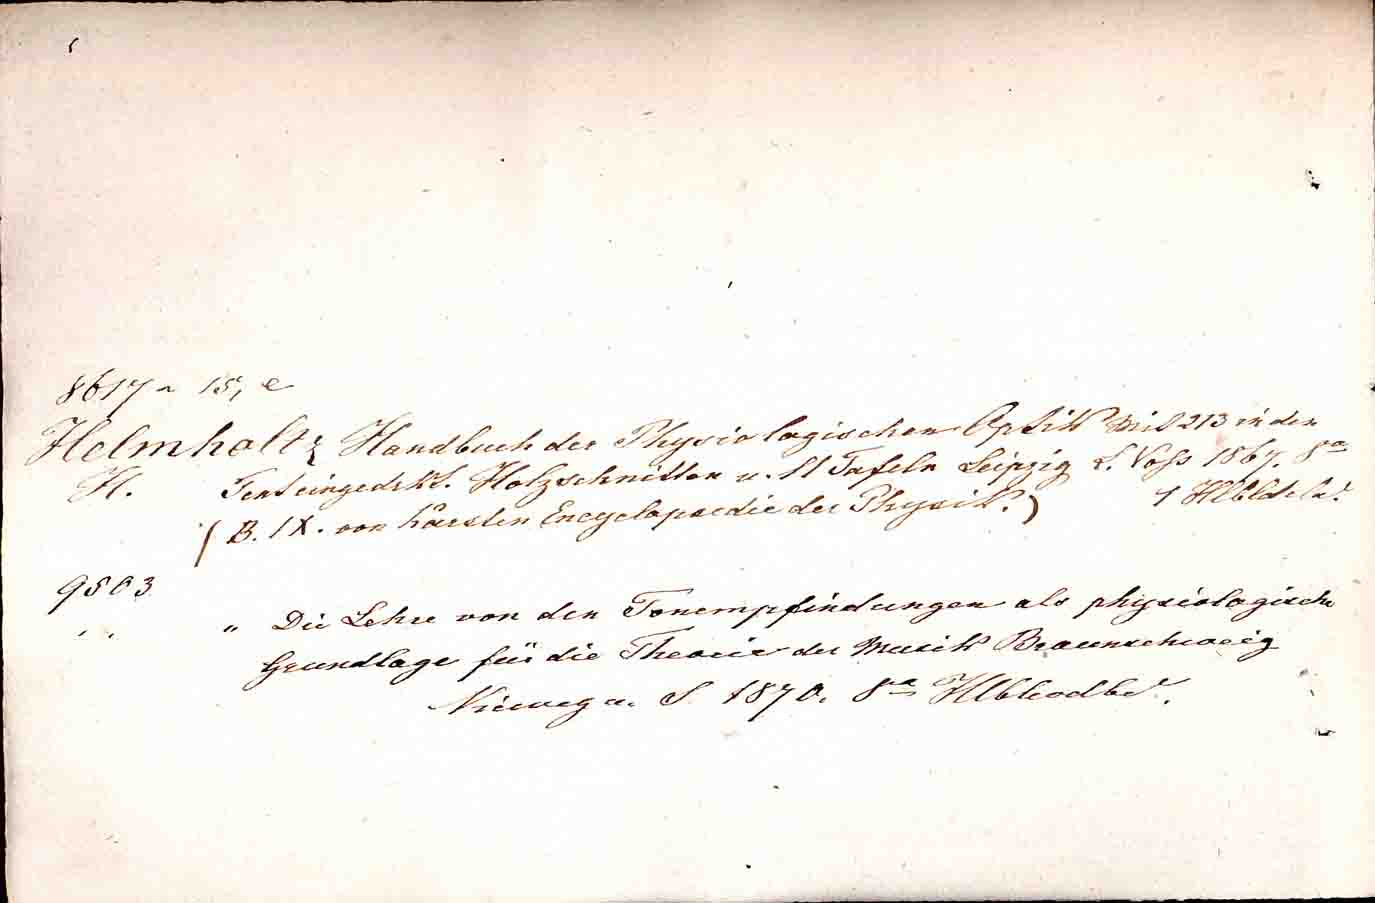 8617 ~ 15, e
Helmholtz Handbuch der Physiologischen Optik Mit 213 in den
H. Text eingedrkt. Holzschnitten u. 11 Tafeln Leipzig L. Voss 1867. 8º
( B. IX. von Karsten Encyclopaedie der Physik.) 1 Hlbld
9503
" Die Lehre von den Tonempfindungen als physiologische
Grundlage für die Theorie der Musik Braunschweig
Vieweg u. S. 1870. 8º